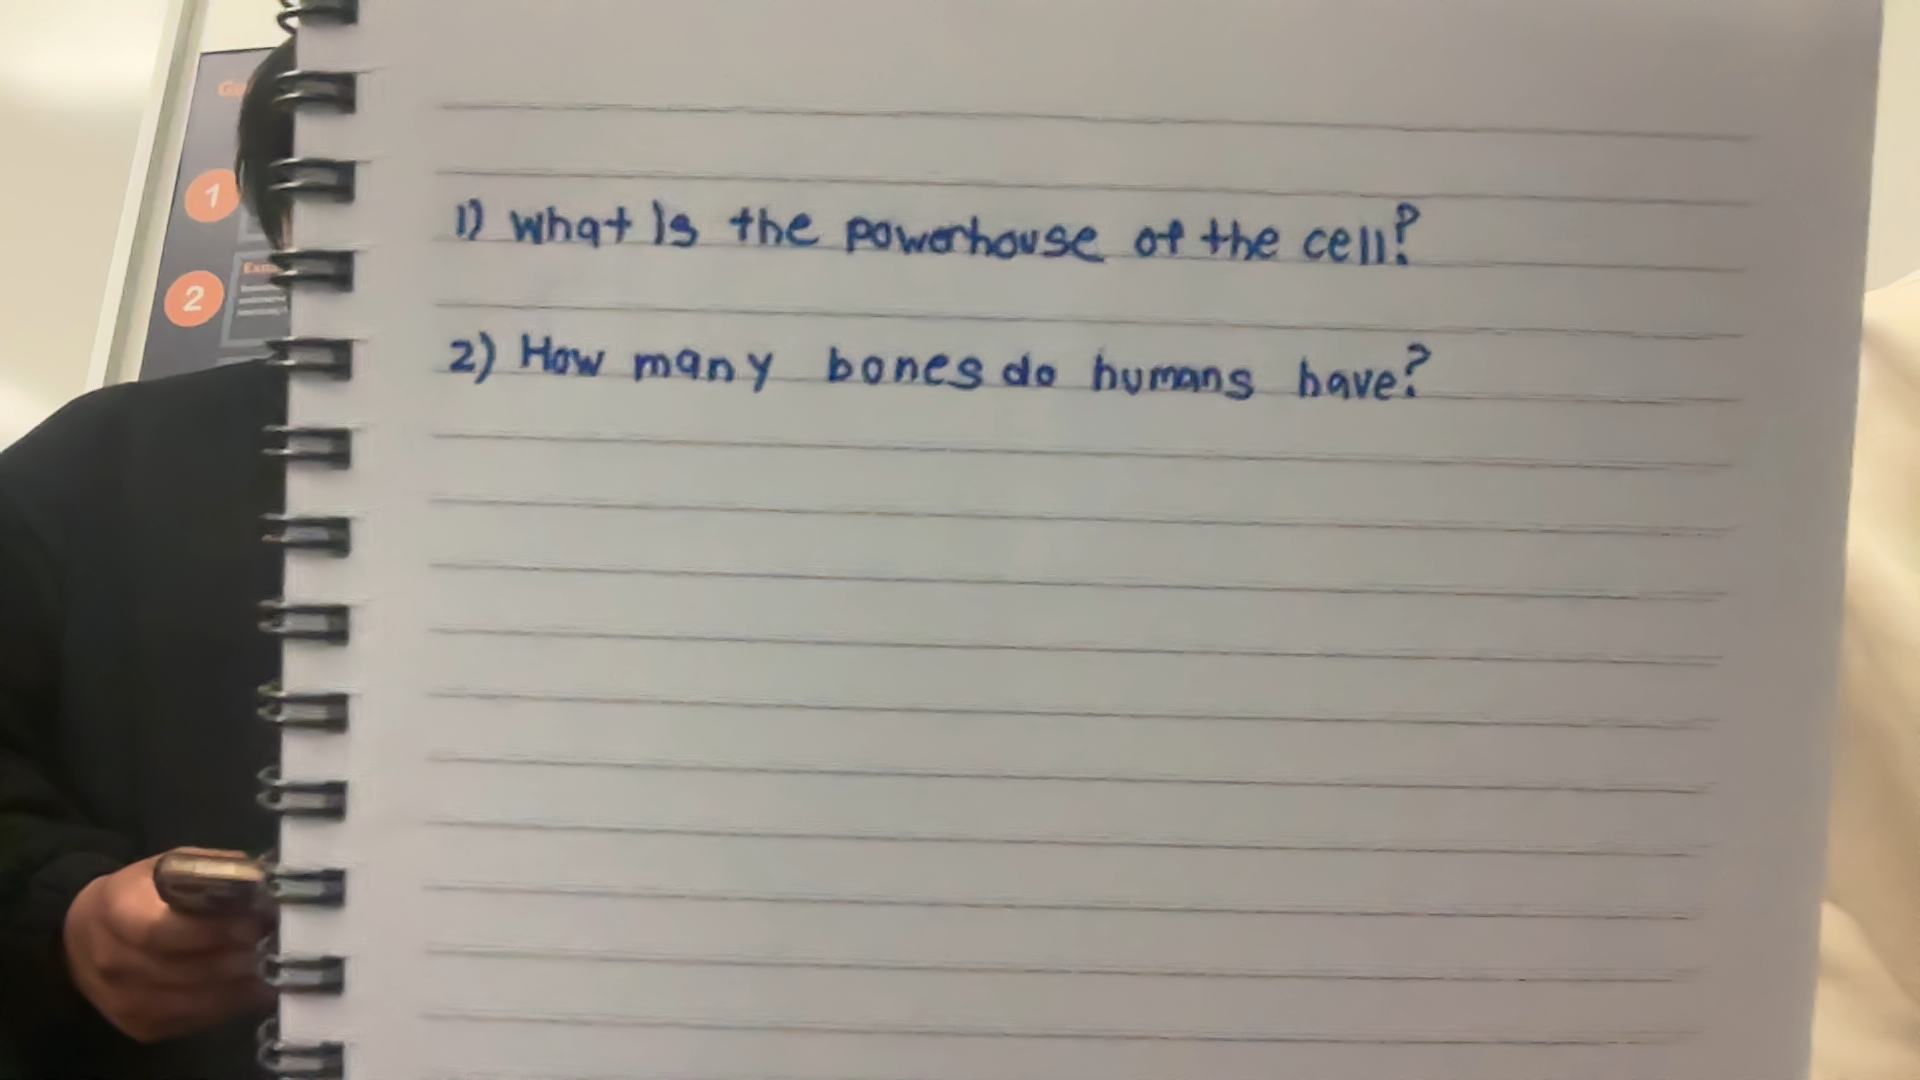 Gu
1
2
Exam
1) What Is the powerhouse of the cell?
2) How many bones do humans have?